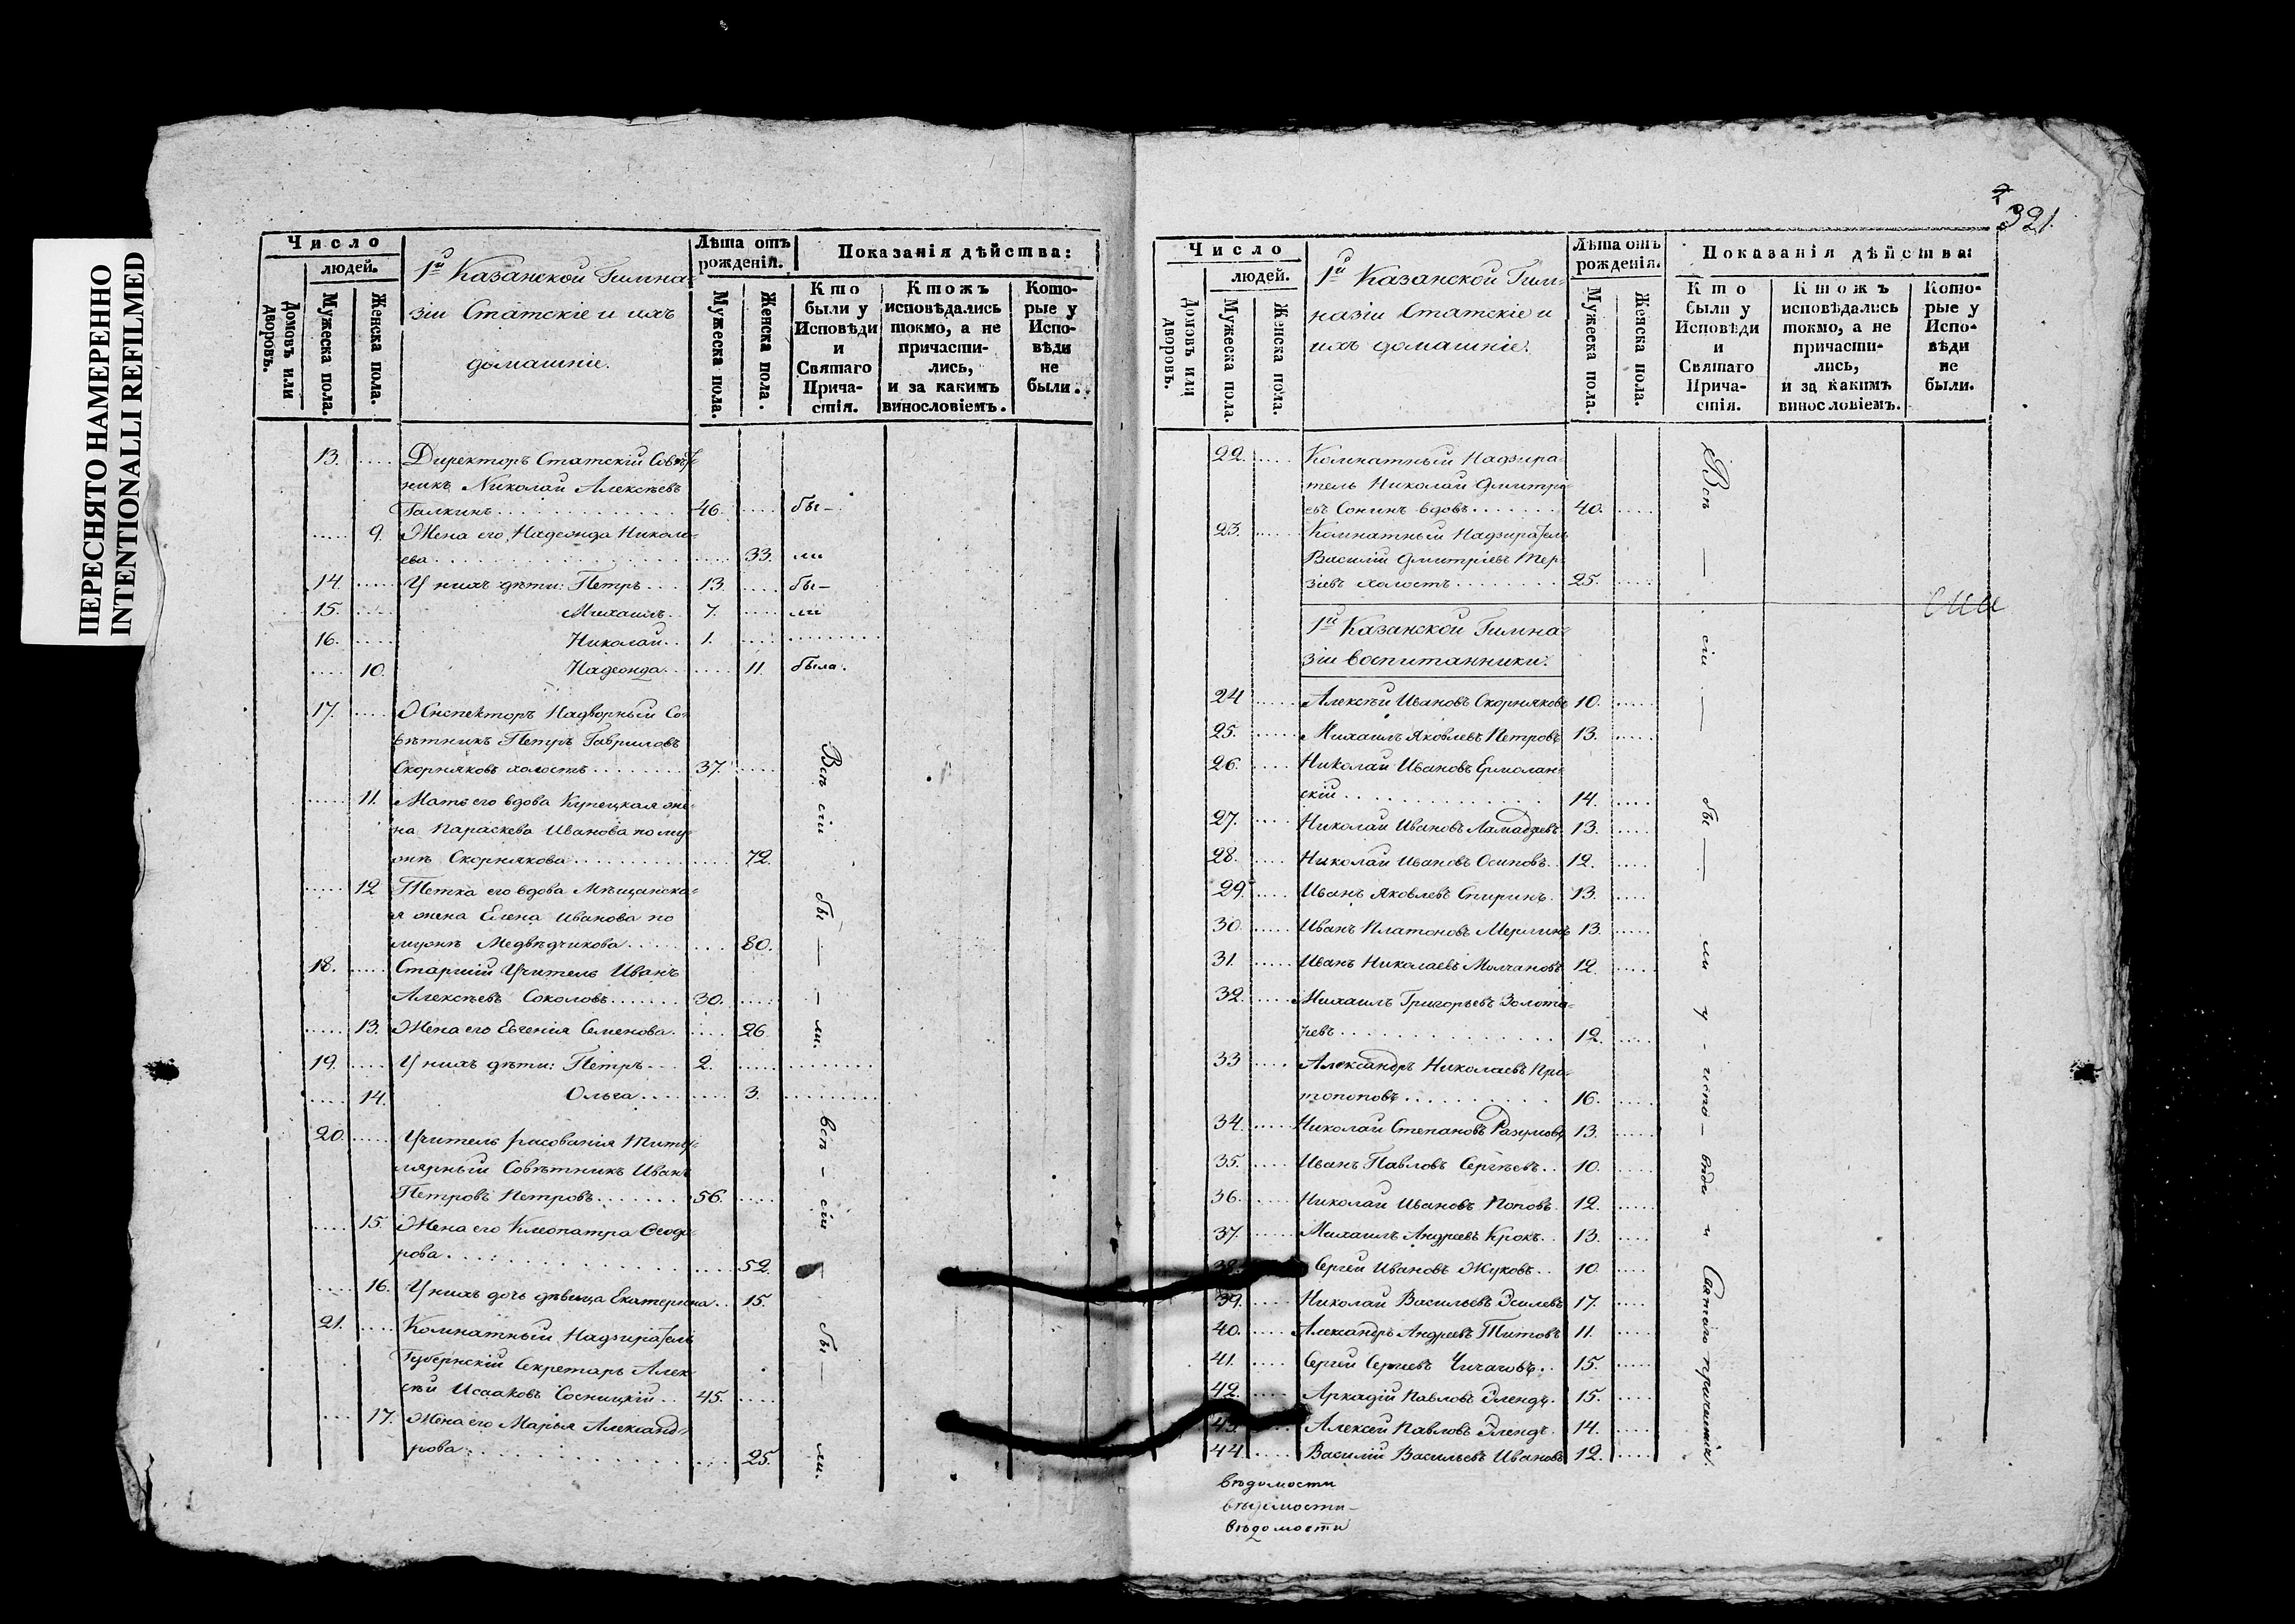 ПЕРЕСНЯТО НАМЕРЕННО
INTENTIONALLI REFILMED
Число
людей.
Домовъ или дворовъ.
Мужеска пола.
Женска пола.
1й Казанской Гимна-
зіи Статскіе и ихъ
домашніе.
Лѣта отъ рожденія.
Мужеска пола.
Женска пола.
Показанія дѣйства:
Кто были у Исповѣди и Святаго Прича-стія.
Ктожъ исповѣдались токмо, а не причасти-лись, и за какимъ винословіемъ.
Кото-рые у Испо-вѣди не были.
13. Директоръ Статскій Совѣт-
никъ Николай Алексѣевъ
Галкинъ 46. бы-
9. Жена его, Надежда Никола-
ева 33. ли
14. У нихъ дѣти: Петръ 13. бы-
15. Михаилъ 7. ли
16. Николай 1.
10. Надежда 11. была.
17. Инспекторъ Надворный Со-
вѣтникъ Петръ Гавриловъ
Скорняковъ холостъ 37.
11. Мать его вдова Купецкая же-
на Параскева Иванова по му-
жѣ Скорнякова 72.
12 Тетка его вдова Мѣщанска-
я жена Елена Иванова по
мужѣ Медвѣдчикова 80.
18. Старшій Учитель Иванъ
Алексѣевъ Соколовъ 30.
13. Жена его Евгенія Семенова 26
19. У нихъ дѣти: Петръ 2.
14. Ольга 3.
20. Учитель рисованія Титу-
лярный Совѣтникъ Иванъ
Петровъ Петровъ 56.
15 Жена его Клеопатра Ѳеодо-
рова 52.
16. У нихъ дочь дѣвица Екатерина 15.
21. Комнатный Надзиратель
Губернскій Секретарь Алек-
сѣй Исааковъ Сосницкій 45.
17. Жена его Марья Александ-
рова 25.
Всѣ сіи бы — — ли.
всѣ - сіи — бы — ли.
2
321.
Число
людей.
Домовъ или дворовъ.
Мужеска пола.
Женска пола.
1й Казанской Гим-
назіи Статскіе и
ихъ домашніе.
Лѣта отъ рожденія.
Мужеска пола.
Женска пола.
Показанія дѣйства:
Кто были у Исповѣди и Святаго Прича-стія.
Ктожъ исповѣдались токмо, а не причасти-лись, и за какимъ винословіемъ.
Кото-рые у Испо-вѣди не были.
22. Комнатный Надзира-
тель Николай Дмитрі-
евъ Сонинъ вдовъ 40.
23. Комнатный Надзиратель
Василій Дмитріевъ Тер-
зіевъ холостъ 25.
1й Казанской Гимна-
зіи воспитанники.
24 Алексѣй Ивановъ Скорняковъ 10.
25. Михаилъ Яковлевъ Петровъ 13.
26. Николай Ивановъ Ермолан-
скій 14.
27. Николай Ивановъ 13.
28. Николай Ивановъ Осиповъ 12.
29. Иванъ Яковлевъ Спиринъ 13.
30. Иванъ Платоновъ Мерлинъ 13.
31. Иванъ Николаевъ Молчановъ 12.
32. Михаилъ Григорьевъ Золота-
ревъ 12.
33 Александръ Николаевъ Про-
топоповъ 16.
34. Николай Степановъ Разумовъ 13.
35. Иванъ Павловъ Сергѣевъ 10.
36. Николай Ивановъ Поповъ 12.
37. Михаилъ Андреевъ Крокъ 13.
38. Сергѣй Ивановъ Жуковъ 10.
39. Николай Васильевъ 17.
40. Александръ Андреевъ Титовъ 11.
41. Сергѣй Сергѣевъ Чичаговъ 15.
42. Аркадій Павловъ 15.
43. Алексѣй Павловъ 14.
44. Василій Васильевъ Ивановъ 12.
Всѣ — сіи — бы — ли у - испо - вѣди и Святаго причастія.
вѣдомости
вѣдомости
вѣдомости